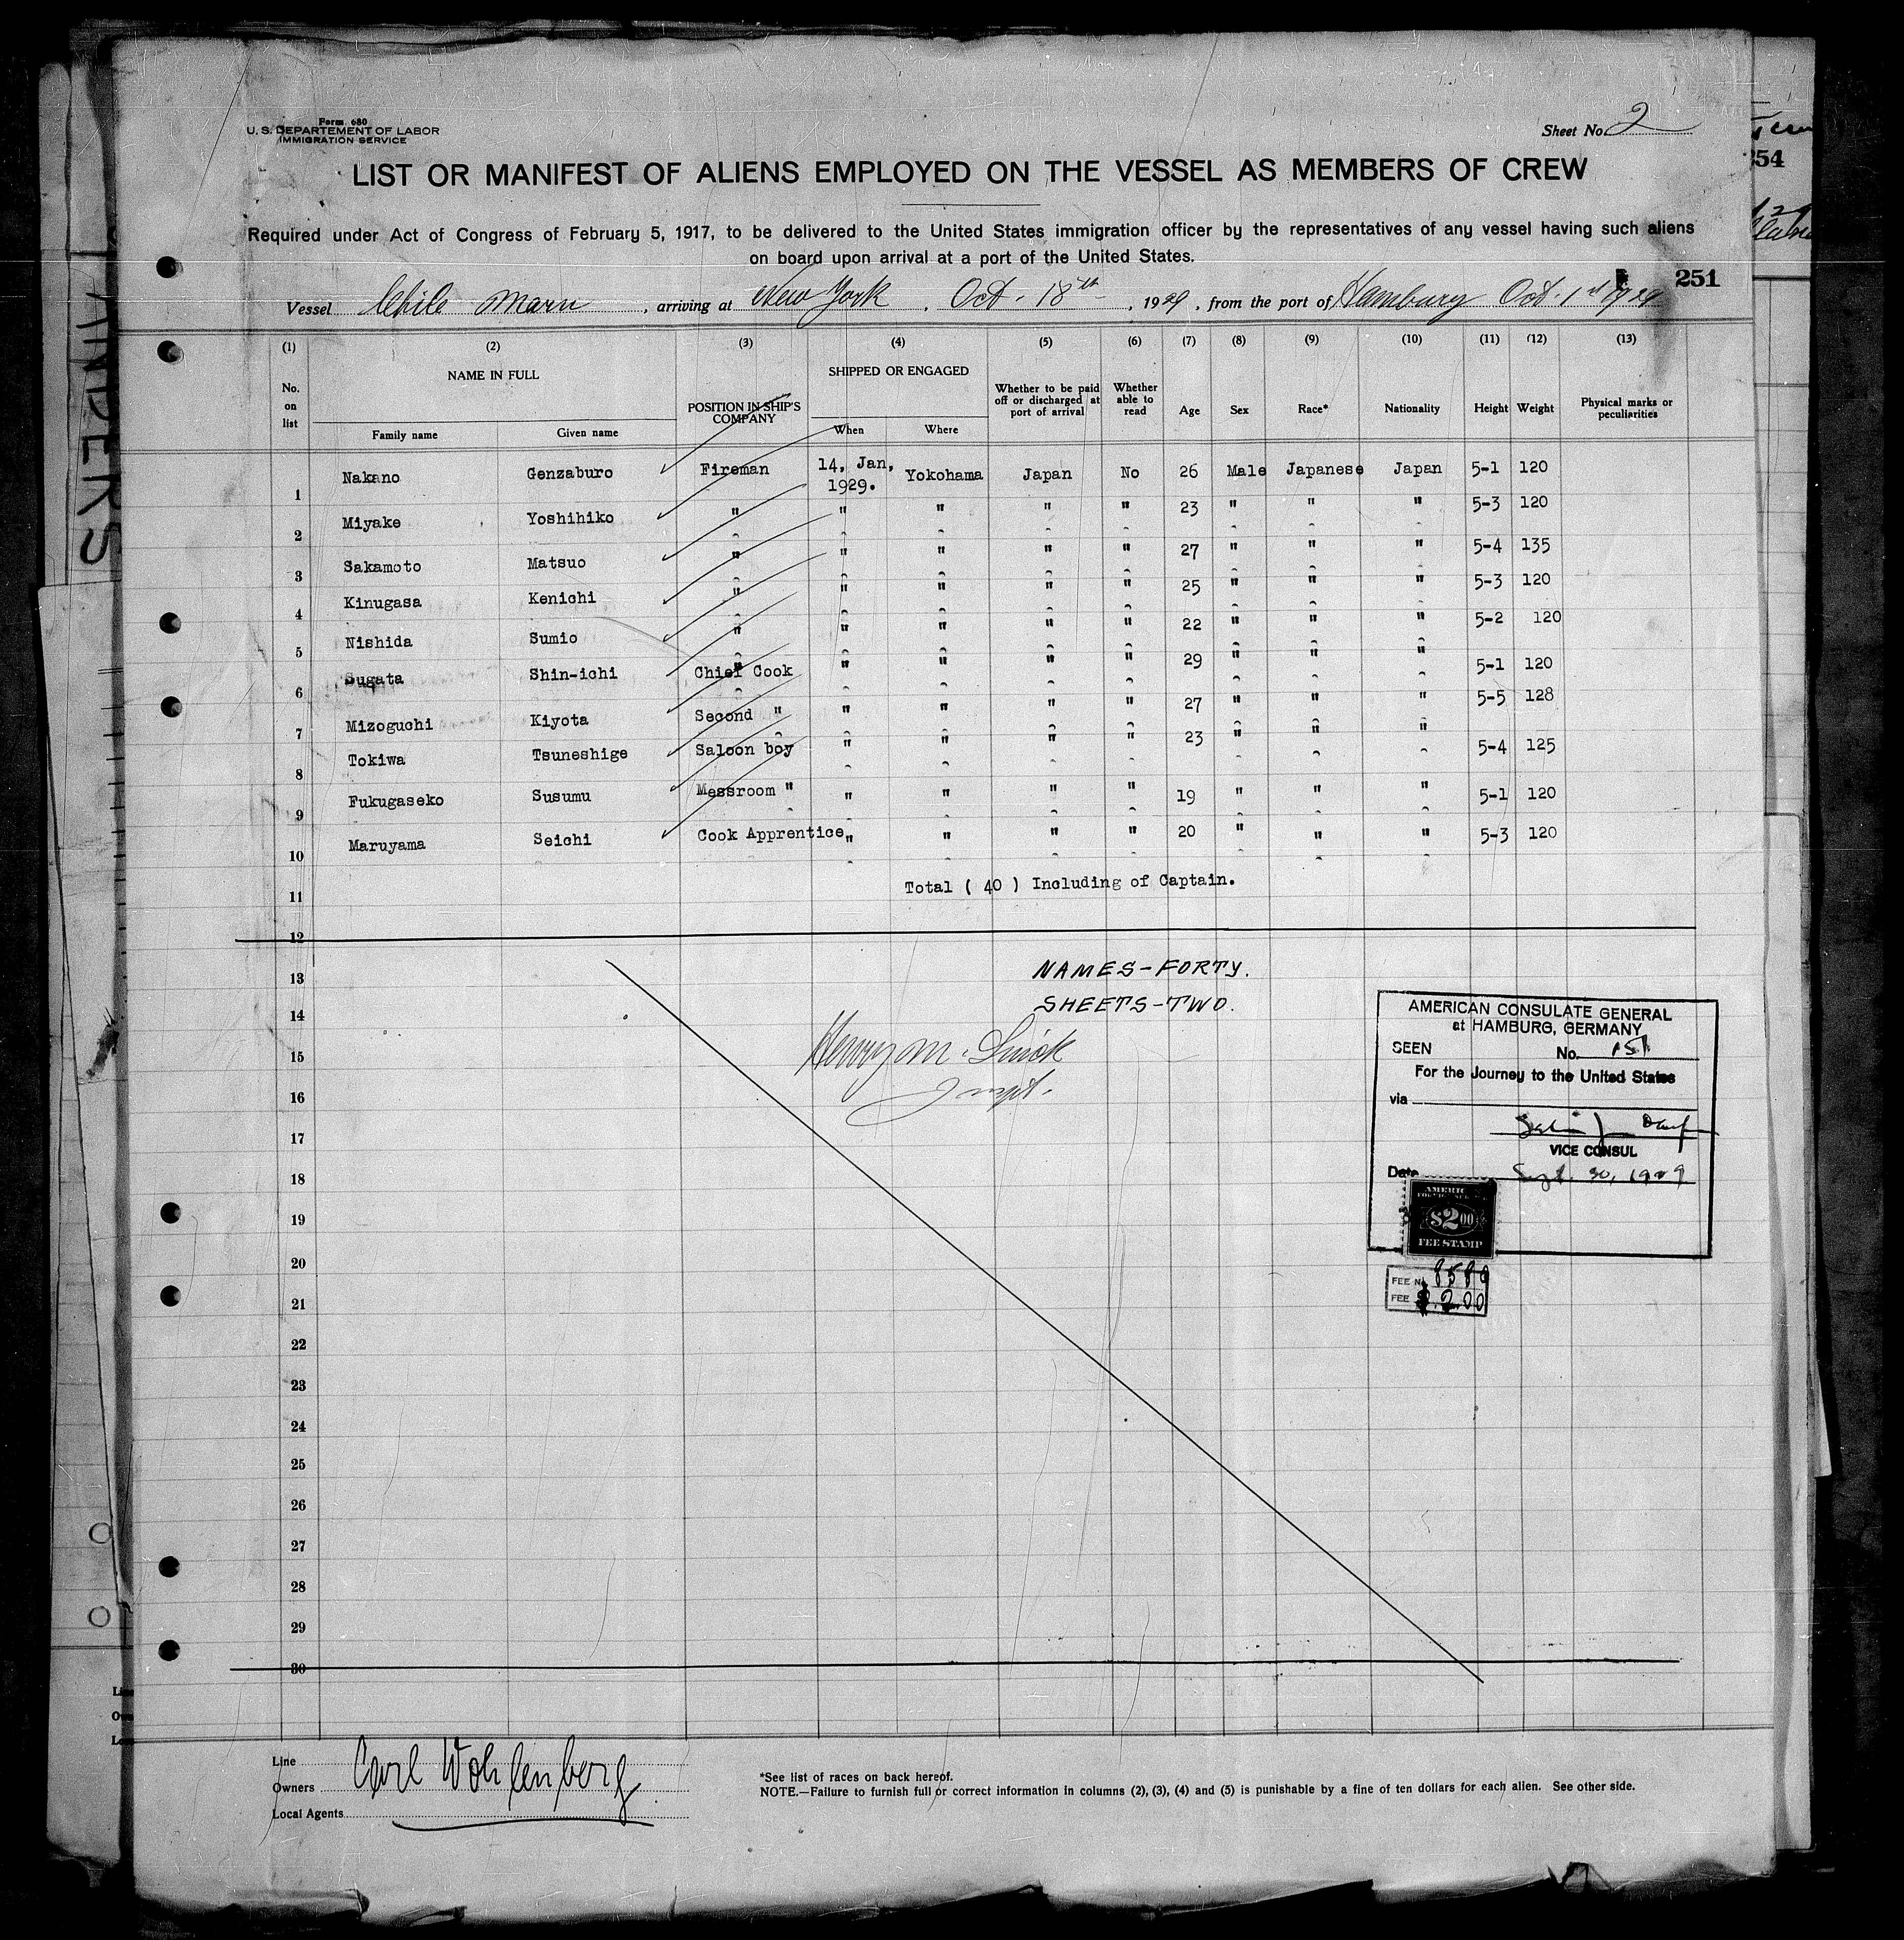 Form 680
U. S. DEPARTEMENT OF LABOR
IMMIGRATION SERVICE
Sheet No. 2
LIST OR MANIFEST OF ALIENS EMPLOYED ON THE VESSEL AS MEMBERS OF CREW
Required under Act of Congress of February 5, 1917, to be delivered to the United States immigration officer by the representatives of any vessel having such aliens
on board upon arrival at a port of the United States.
251
Vessel Chile Maru, arriving at New York, Oct. 18th, 1929, from the port of Hamburg Oct. 1st 1929
(1) (2) (3) (4) (5) (6) (7) (8) (9) (10) (11) (12) (13)
No. on list NAME IN FULL Family name Given name POSITION IN SHIP'S COMPANY SHIPPED OR ENGAGED When Where Whether to be paid off or discharged at port of arrival Whether able to read Age Sex Race* Nationality Height Weight Physical marks or peculiarities
1 Nakano Genzaburo Fireman 14, Jan, 1929. Yokohama Japan No 26 Male Japanese Japan 5-1 120
2 Miyake Yoshihiko " " " " " 23 " " " 5-3 120
3 Sakamoto Matsuo " " " " " 27 " " " 5-4 135
4 Kinugasa Kenichi " " " " " 25 " " " 5-3 120
5 Nishida Sumio " " " " " 22 " " " 5-2 120
6 Sugata Shin-ichi Chief Cook " " " " 29 " " " 5-1 120
7 Mizoguchi Kiyota Second " " " " " 27 " " " 5-5 128
8 Tokiwa Tsuneshige Saloon boy " " " " 23 " " " 5-4 125
9 Fukugaseko Susumu Messroom " " " " " 19 " " " 5-1 120
10 Maruyama Seichi Cook Apprentice " " " " 20 " " " 5-3 120
11 Total ( 40 ) Including of Captain.
12
13 NAMES-FORTY.
14 SHEETS-TWO.
15 Henry M.
16
17
18
19
20
21
22
23
24
25
26
27
28
29
30
AMERICAN CONSULATE GENERAL
at HAMBURG, GERMANY
SEEN No. 151
For the Journey to the United States
via
VICE CONSUL
Date Sept. 30, 1929
AMERIC
$2.00
FEE STAMP
FEE No. 8589
FEE $ 2.00
Line
Owners Carl Wohlenberg
Local Agents
*See list of races on back hereof.
NOTE.—Failure to furnish full or correct information in columns (2), (3), (4) and (5) is punishable by a fine of ten dollars for each alien. See other side.
254